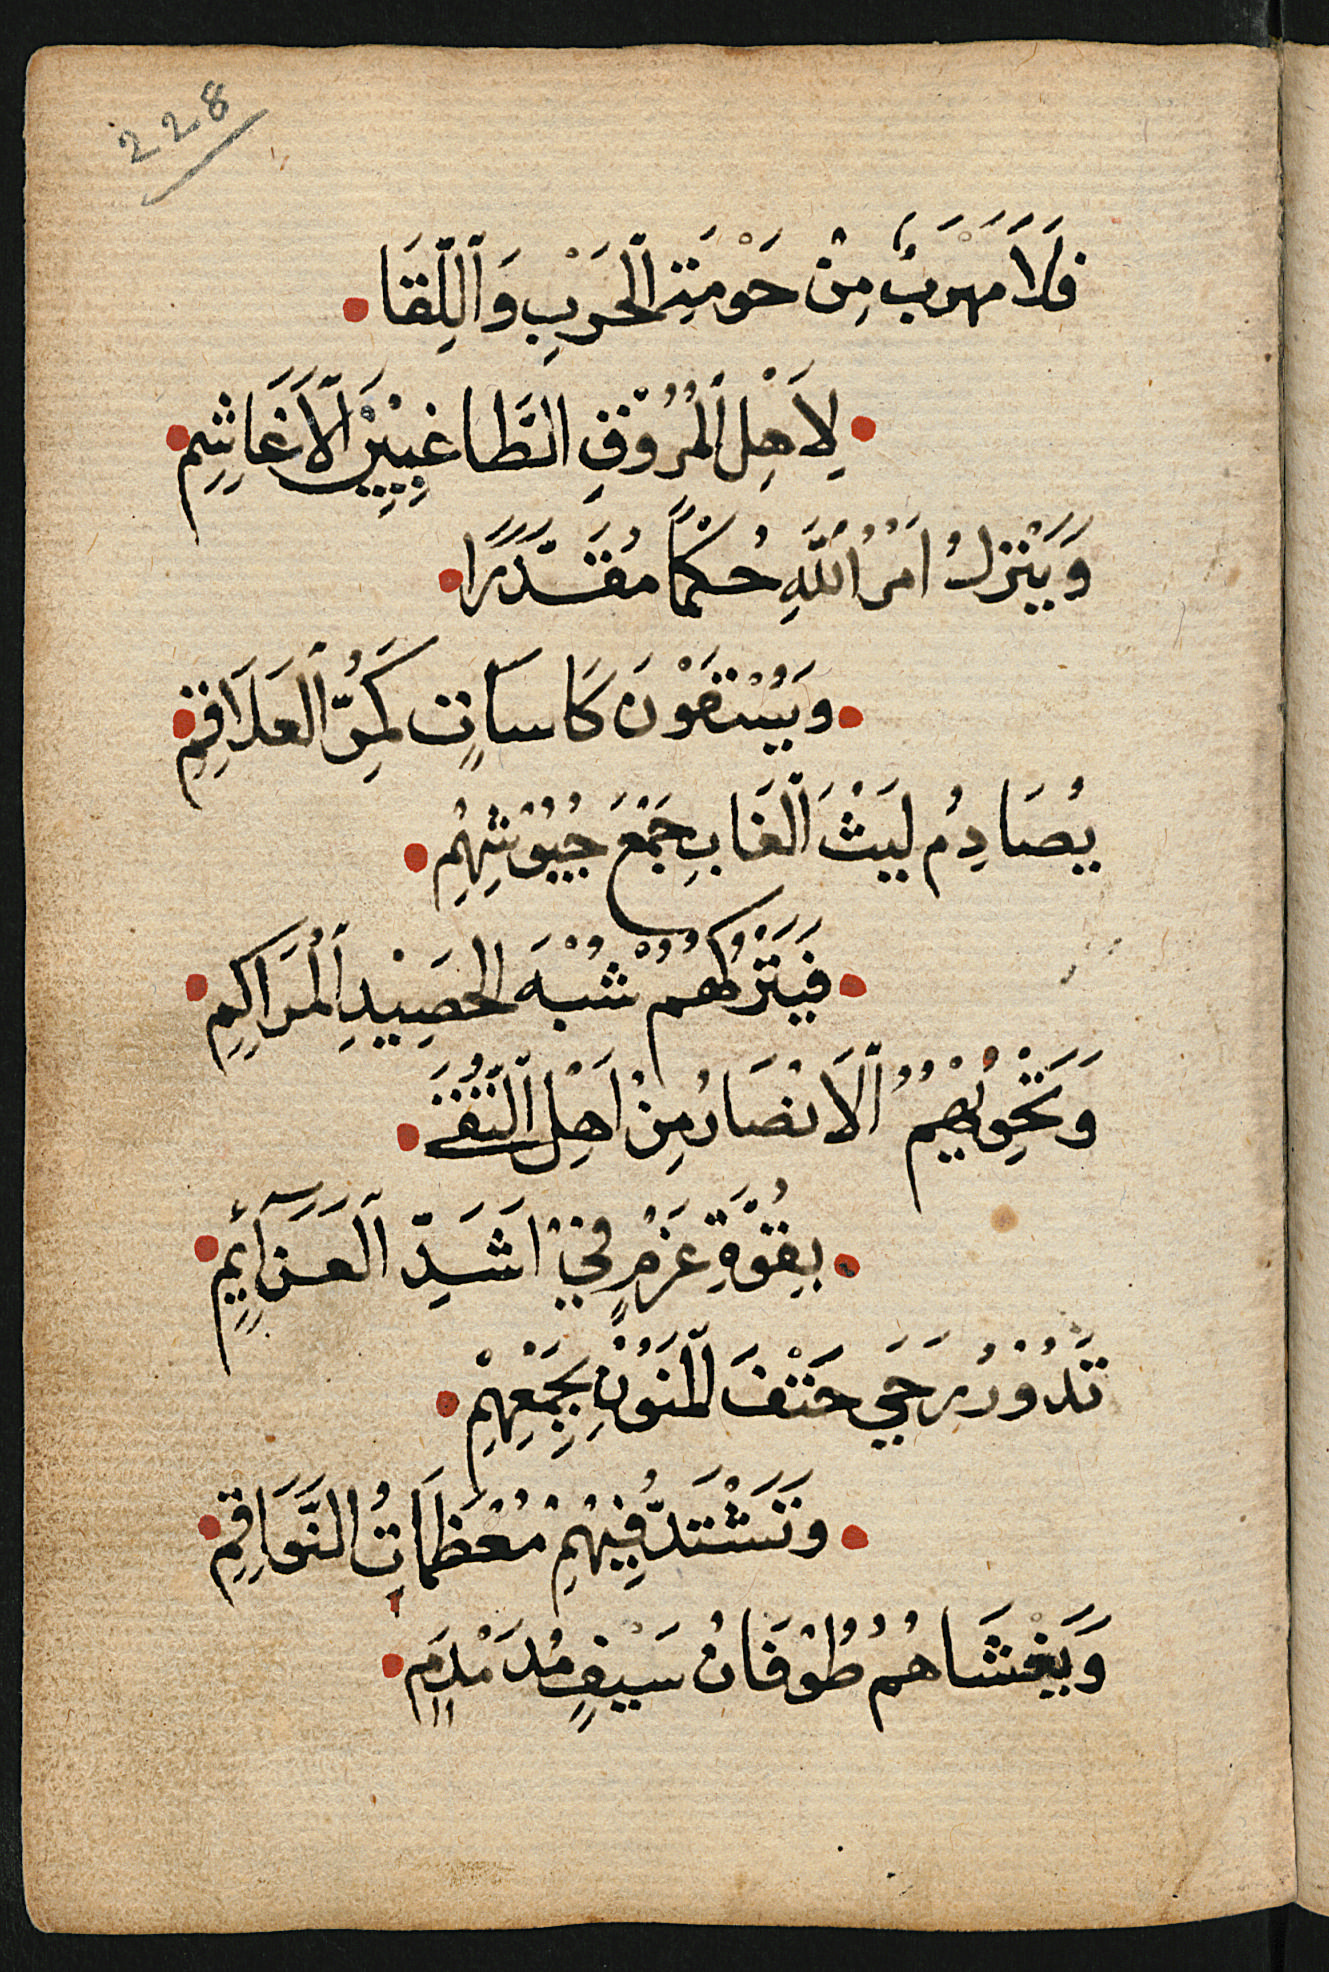 228
فَلَا مَهْرَبٌ مِنْ حَوْمَةِ ٱلْحَرْبِ وَٱللِّقَا
لِأَهْلِ ٱلْمُرُوْقِ الطَّاغِيِيْنَ ٱلْأَغَاشِمِ
وَيَنْزِلُ اَمْرُ ٱللَّهِ حُكْمًا مُقَدَّرًا
وَيُسْقَوْنَ كَاسَاتٍ كَمُرِّ ٱلْعَلَاقِمِ
يُصَادِمُ لَيْثَ ٱلْغَابِ جَمْعَ جُيُوْشِهِمْ
فَيَتْرُكُهُمْ شُبْهَ الْحَصِيْدِ ٱلْمُرَاكِمِ
وَتَحْوِيْهِمُ ٱلْاَنْصَارُ مِنْ اَهْلِ ٱلتُّقَى
بِقُوَّةِ عَزْمٍ فِيْ اَشَدِّ ٱلْعَزَآئِمِ
تَدُوْرُ رَحَي حَتْفَ ٱلْمَنُوْنِ بِجَمْعِهِمْ
وَتَشْتَدُّ فِيْهِمْ مُعْظَمَاتُ النَّوَاقِمِ
وَيَغْشَاهُمُ طُوْفَانُ سَيْفٍ مُدَمْدِمٍ